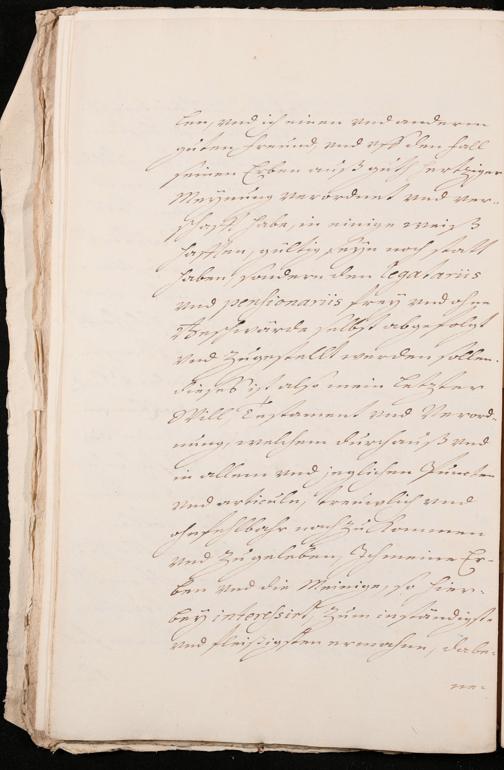 len, vnd ich einen vnd anderen
guten Freund, vnd vff den fall
seinen Erben auß gut hertziger
Meÿnung verordnet vnd ver-
schafft habe, in einige weiß
hafften, gültig seÿn noch statt
haben, sondern den legatariis
vnd pensionariis freÿ vnd ohne
Beschwärde selbst abgefolgt
vnd zugestellt werden sollen.
dieses ist also mein letzter
Will, Testament vnd Verord-
nung, welchem durchauß vnd
in allem vnd jeglichen Puncten
vnd articuln, treulich vnd
ohnfehlbahr nachzukommen
vnd zugeleben, Ich meine Er-
ben vnd die Meinige, so hier-
beÿ interessirt, zum inständigst-
vnd fleissigsten ermahne, dabe-
ne-